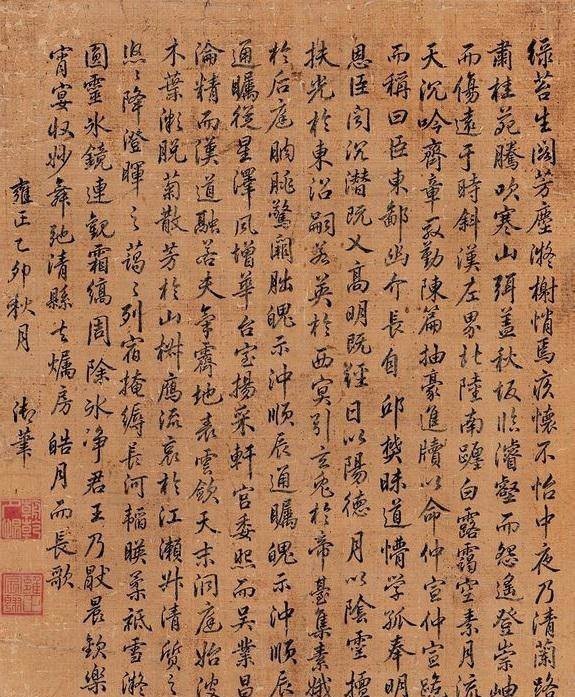 綠苔生閣芳塵凝榭悄焉疚懷不怡中夜乃清蘭路
肅桂苑騰吹寒山弭蓋秋坂臨濬壑而怨遙登崇岫
而傷遠于時斜漢左界北陸南躔白露靄空素月流
天沉吟齊章殷勤陳篇抽豪進牘以命仲宣仲宣跪
而稱曰臣東鄙幽介長自邱樊昧道懵學孤奉明
恩臣聞沉潛既义高明既經日以陽德月以陰靈擅
扶光於東沼嗣若英於西冥引玄兔於帝臺集素娥
於后庭朒朓驚闕朏魄示沖順辰通矚魄示沖順辰
通矚從星澤風增華台室揚采軒宮委照而吳業昌
淪精而漢道融若夫氣霽地表雲斂天末洞庭始波
木葉漸脫菊散芳於山椒鴈流哀於江瀨升清質之
悠〻降澄暉之藹〻列宿掩縟長河韜暎柔祇雪凝
圓靈冰鏡連觀霜縞周除冰淨君王乃厭晨歡樂
宵宴收妙舞弛清縣去燭房皓月而長歌
雍正乙卯秋月 御筆